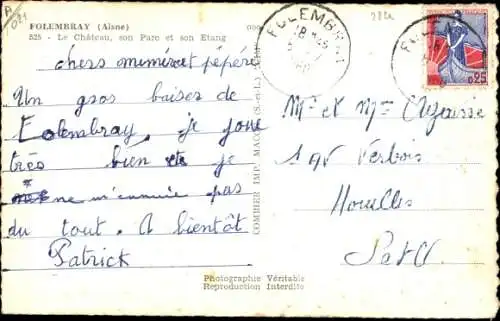 FOLEMBRAY (Aisne)
525 - Le Château, son Parc et son Etang
chers mémé et pépère
Un gros baiser de
Folembray. je joue
très bien et je
ne m'ennuie pas
du tout. A bientôt
Patrick
COMBIER IMP. MACON (S.-&-L.)
Photographie Véritable
Reproduction Interdite
FOLEMBRAY
18 H 45
0,25
Mr et Mme
Verbois
Houilles
S et O